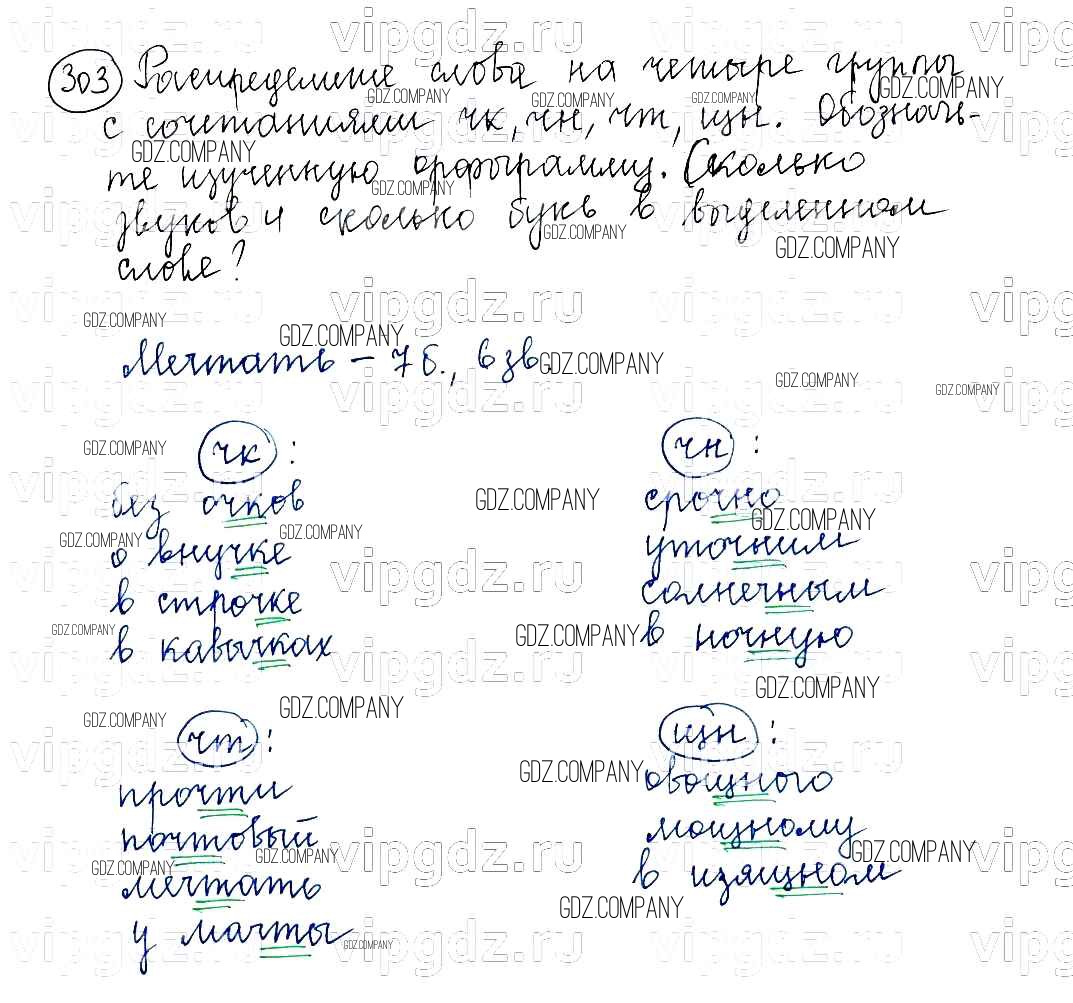 303 Распределите слова на четыре группы
с сочетаниями чк, чн, чт, щн. Обозначь-
те изученную орфограмму. Сколько
звуков и сколько букв в выделенном
слове?
Мечтать – 7 б., 6 зв.
чк: чн:
без очков срочно
о внучке уточним
в строчке солнечным
в кавычках в ночную
чт: щн:
прочти овощного
почтовый мощному
мечтать в изящном
у мачты
vipgdz.ru
GDZ.COMPANY